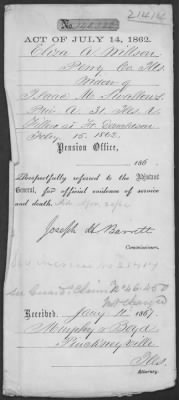 21414
No. 140,322
ACT OF JULY 14, 1862.
Eliza A. Willson
Perry Co. Ills
Widow of
M. Swallows
Pri. A. 31 Ills V.
Killed at Ft. Donelson
Feby 15. 1862.
Pension Office,
186
Respectfully referred to the Adjutant
General, for official evidence of service
and death.
Joseph H Barrett
Commissioner.
see Guard. Claim No 46.450
not changed
Received, Jany 11 1867
Murphy & Boyd
Pinckneyville
Ills
Attorney.